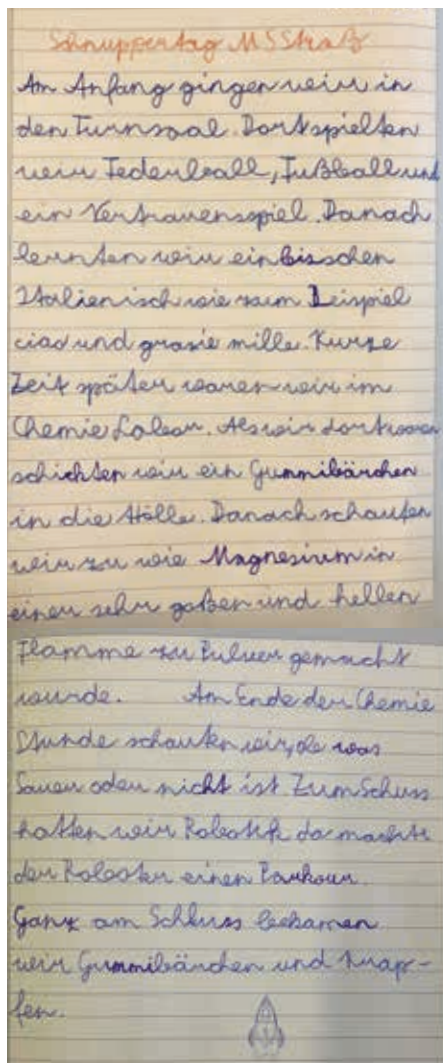 Schnuppertag MS Straß
Am Anfang gingen wir in
den Turnsaal. Dort spielten
wir Federball, Fußball und
ein Vertrauensspiel. Danach
lernten wir ein bisschen
Italienisch wie zum Beispiel
ciao und grasie mille. Kurze
Zeit später waren wir im
Chemie Labor. Als wir dort waren
schickten wir ein Gummibärchen
in die Hölle. Danach schauten
wir zu wie Magnesium in
einer sehr goßen und hellen
Flamme zu Pulver gemacht
wurde. Am Ende der Chemie
Stunde schauten wir, ob was
Sauer oder nicht ist. Zum Schuss
hatten wir Robotik da machte
der Roboter einen Parkour.
Ganz am Schluss bekamen
wir Gummibärchen und Krap-
fen.